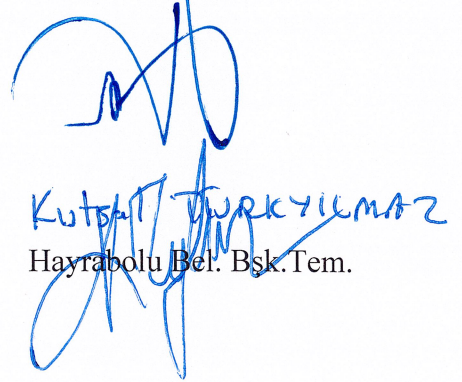 Kutsal TÜRKYILMAZ
Hayrabolu Bel. Bşk.Tem.